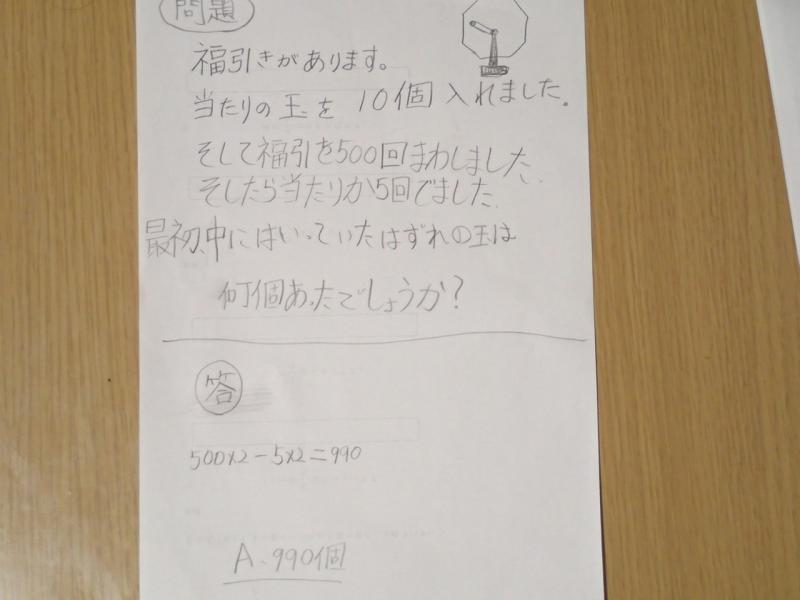 問題
福引きがあります。
当たりの玉を 10個入れました。
そして福引を500回まわしました。
そしたら当たりが5回でました。
最初、中にはいっていたはずれの玉は
何個あったでしょうか?
答
500×2-5×2=990
A、990個